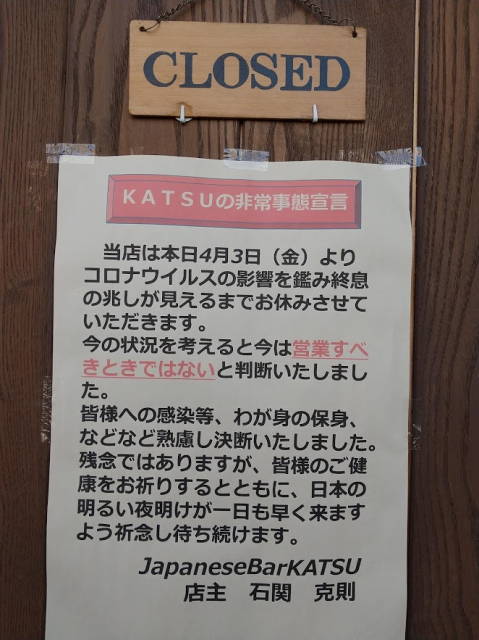 CLOSED
KATSUの非常事態宣言
当店は本日4月3日（金）より
コロナウイルスの影響を鑑み終息
の兆しが見えるまでお休みさせて
いただきます。
今の状況を考えると今は営業すべ
きときではないと判断いたしまし
た。
皆様への感染等、わが身の保身、
などなど熟慮し決断いたしました。
残念ではありますが、皆様のご健
康をお祈りするとともに、日本の
明るい夜明けが一日も早く来ます
よう祈念し待ち続けます。
JapaneseBarKATSU
店主　石関　克則